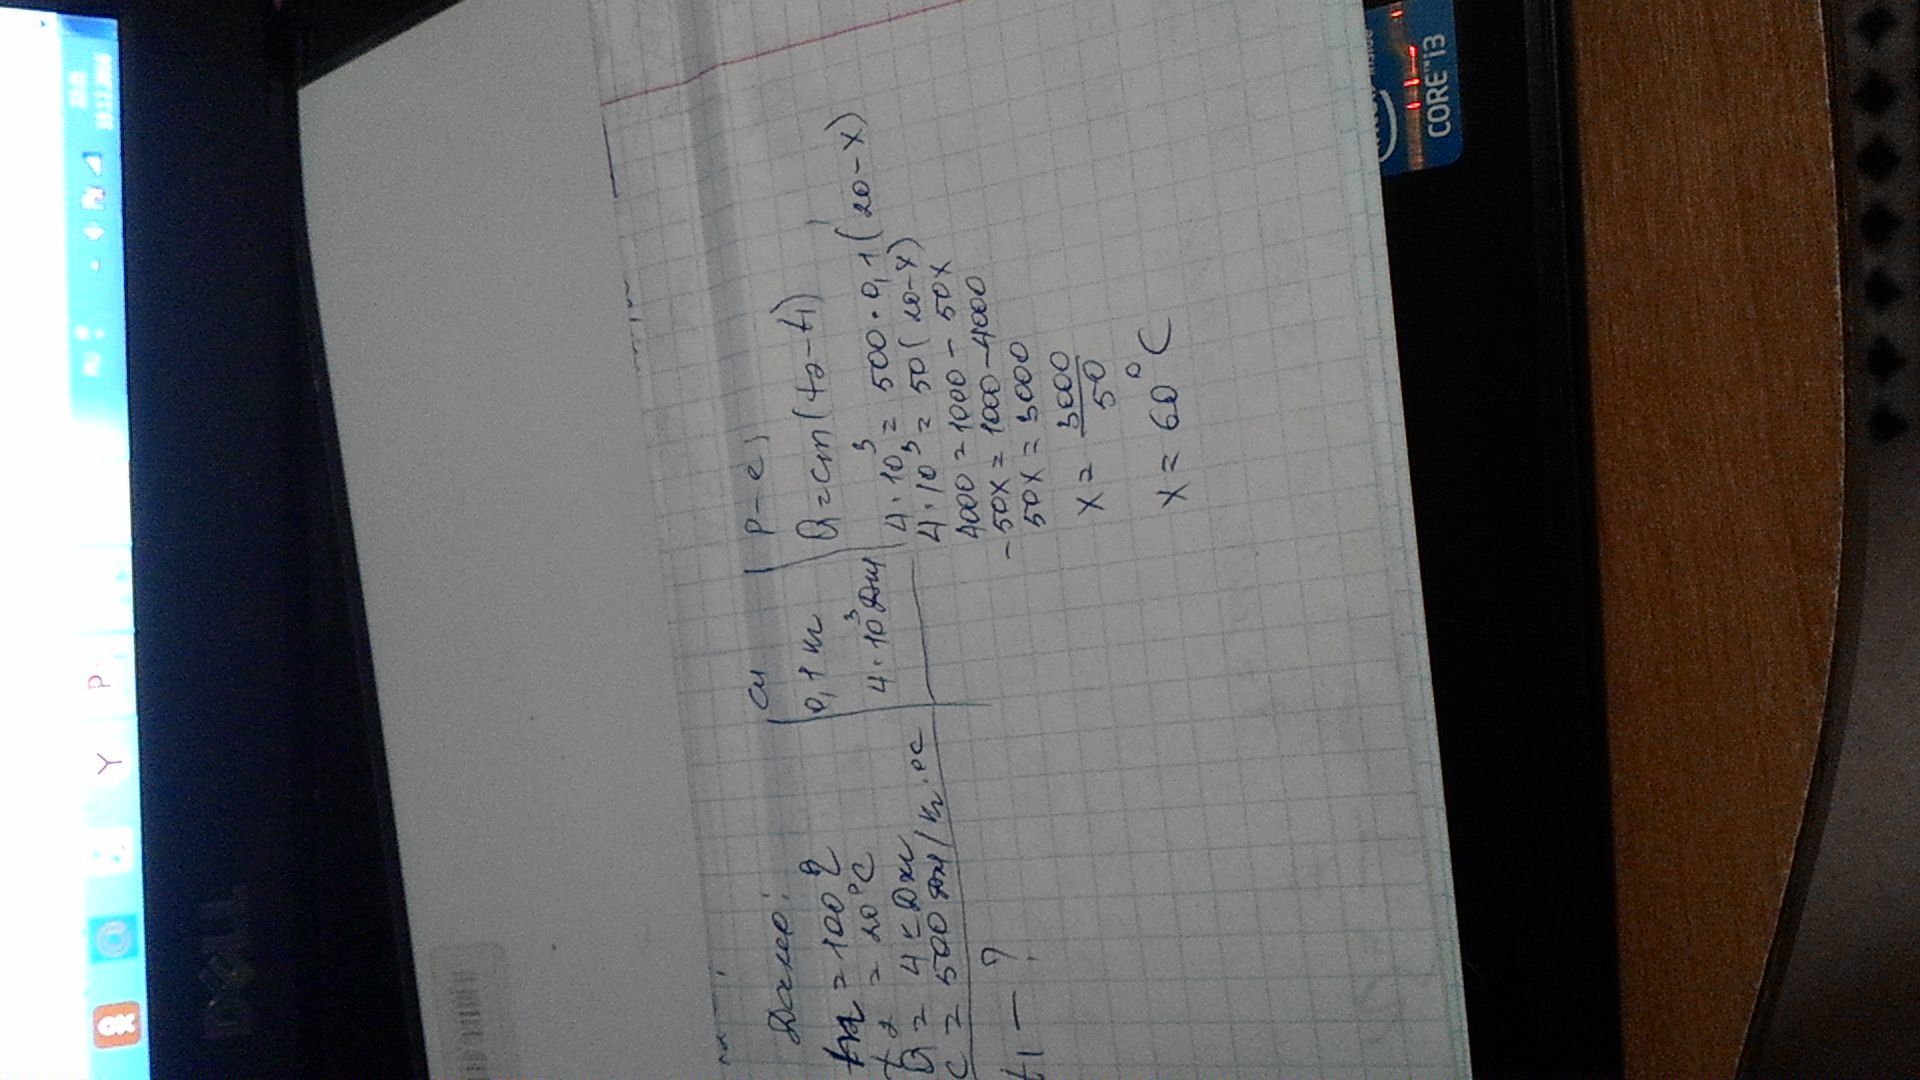 Дано:
m = 100 г
t2 = 20°C
Q = 4 кДж
C = 500 Дж/кг·°C
t1 - ?
си
0,1 кг
4·10³ Дж
Р-е:
Q=cm(t2-t1)
4·10³ = 500·0,1(20-x)
4·10³ = 50(20-x)
4000 = 1000 - 50x
-50x = 1000-4000
50x = 3000
x = 3000/50
x = 60°C
CORE™i3
DELL